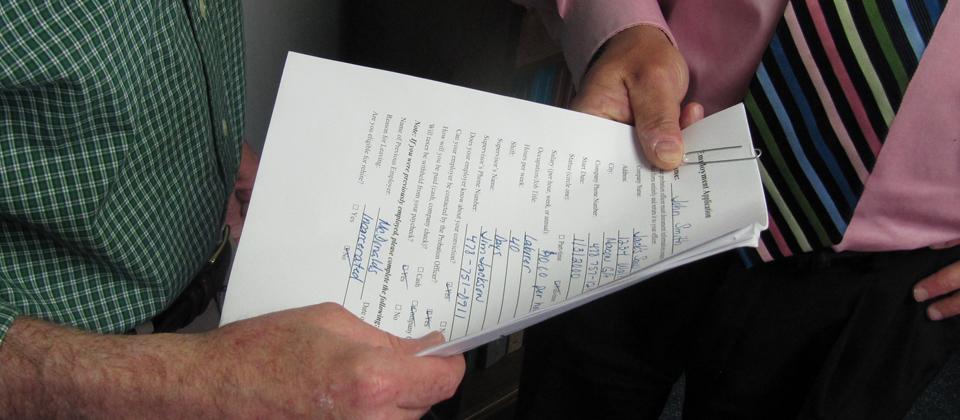 Employment Application
Name: John Smith
Company Name:
Address: 1234
City: Macon GA
Company Phone Number: 478 757-12
Start Date: 1/3/2005
Status (circle one): ☐ Part-time
Salary (per hour, week, or annual) $9.00 per
Occupation/Job Title: Laborer
Hours per week: 40
Shift: Days
Supervisor's Name: Jim Jackson
Supervisor's Phone Number: 478-751-8911
Does your employer know about your conviction? Yes
Can your employer be contacted by the Probation Officer? Yes
How will you be paid (cash, company check)? ☐ Cash Company
Will taxes be withheld from your paycheck? Yes ☐ No
Note: If you were previously employed, please complete the following:
Name of Previous Employer: McDonalds
Reason for Leaving: Incarcerated
Are you eligible for rehire? ☐ Yes No